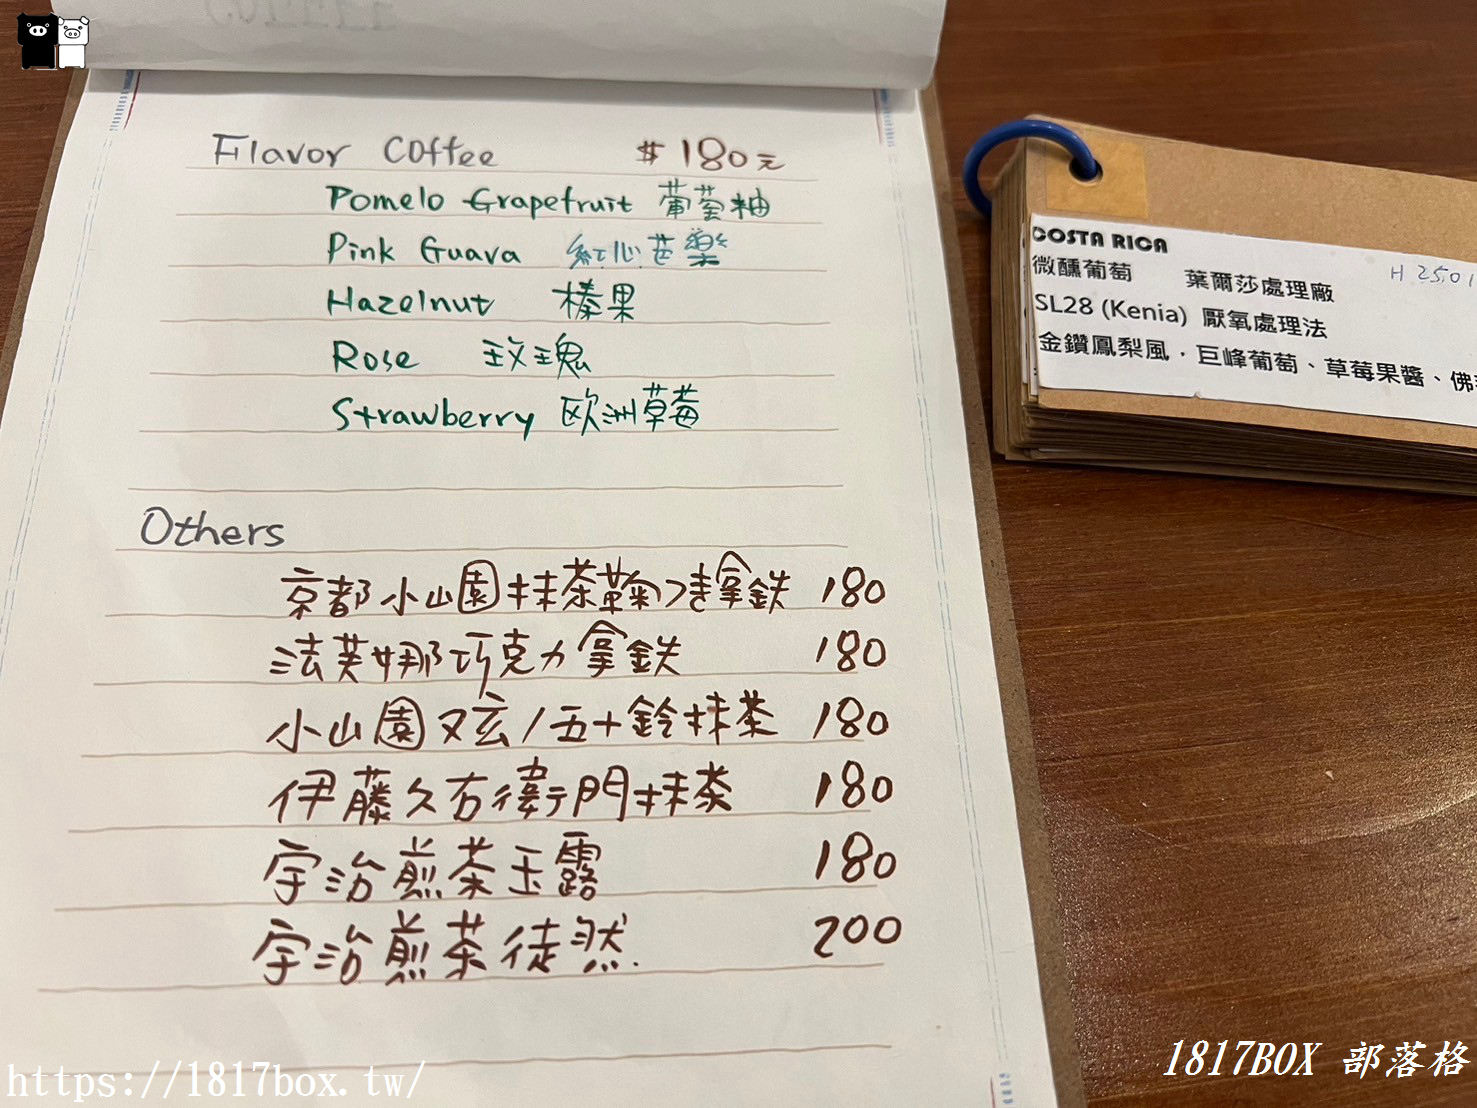 Flavor Coffee $180元
Pomelo Grapefruit 葡萄柚
Pink Guava 紅心芭樂
Hazelnut 榛果
Rose 玫瑰
Strawberry 欧洲草莓
Others
京都小山園抹茶拿鉄 180
法芙娜巧克力拿鉄 180
小山園又玄/五十鈴抹茶 180
伊藤久右衛門抹茶 180
宇治煎茶玉露 180
宇治煎茶徒然 200
COSTA RICA
微醺葡萄 葉爾莎處理廠 H 2501
SL28 (Kenia) 厭氧處理法
金鑽鳳梨風．巨峰葡萄、草莓果醬、佛
https://1817box.tw/
1817BOX 部落格